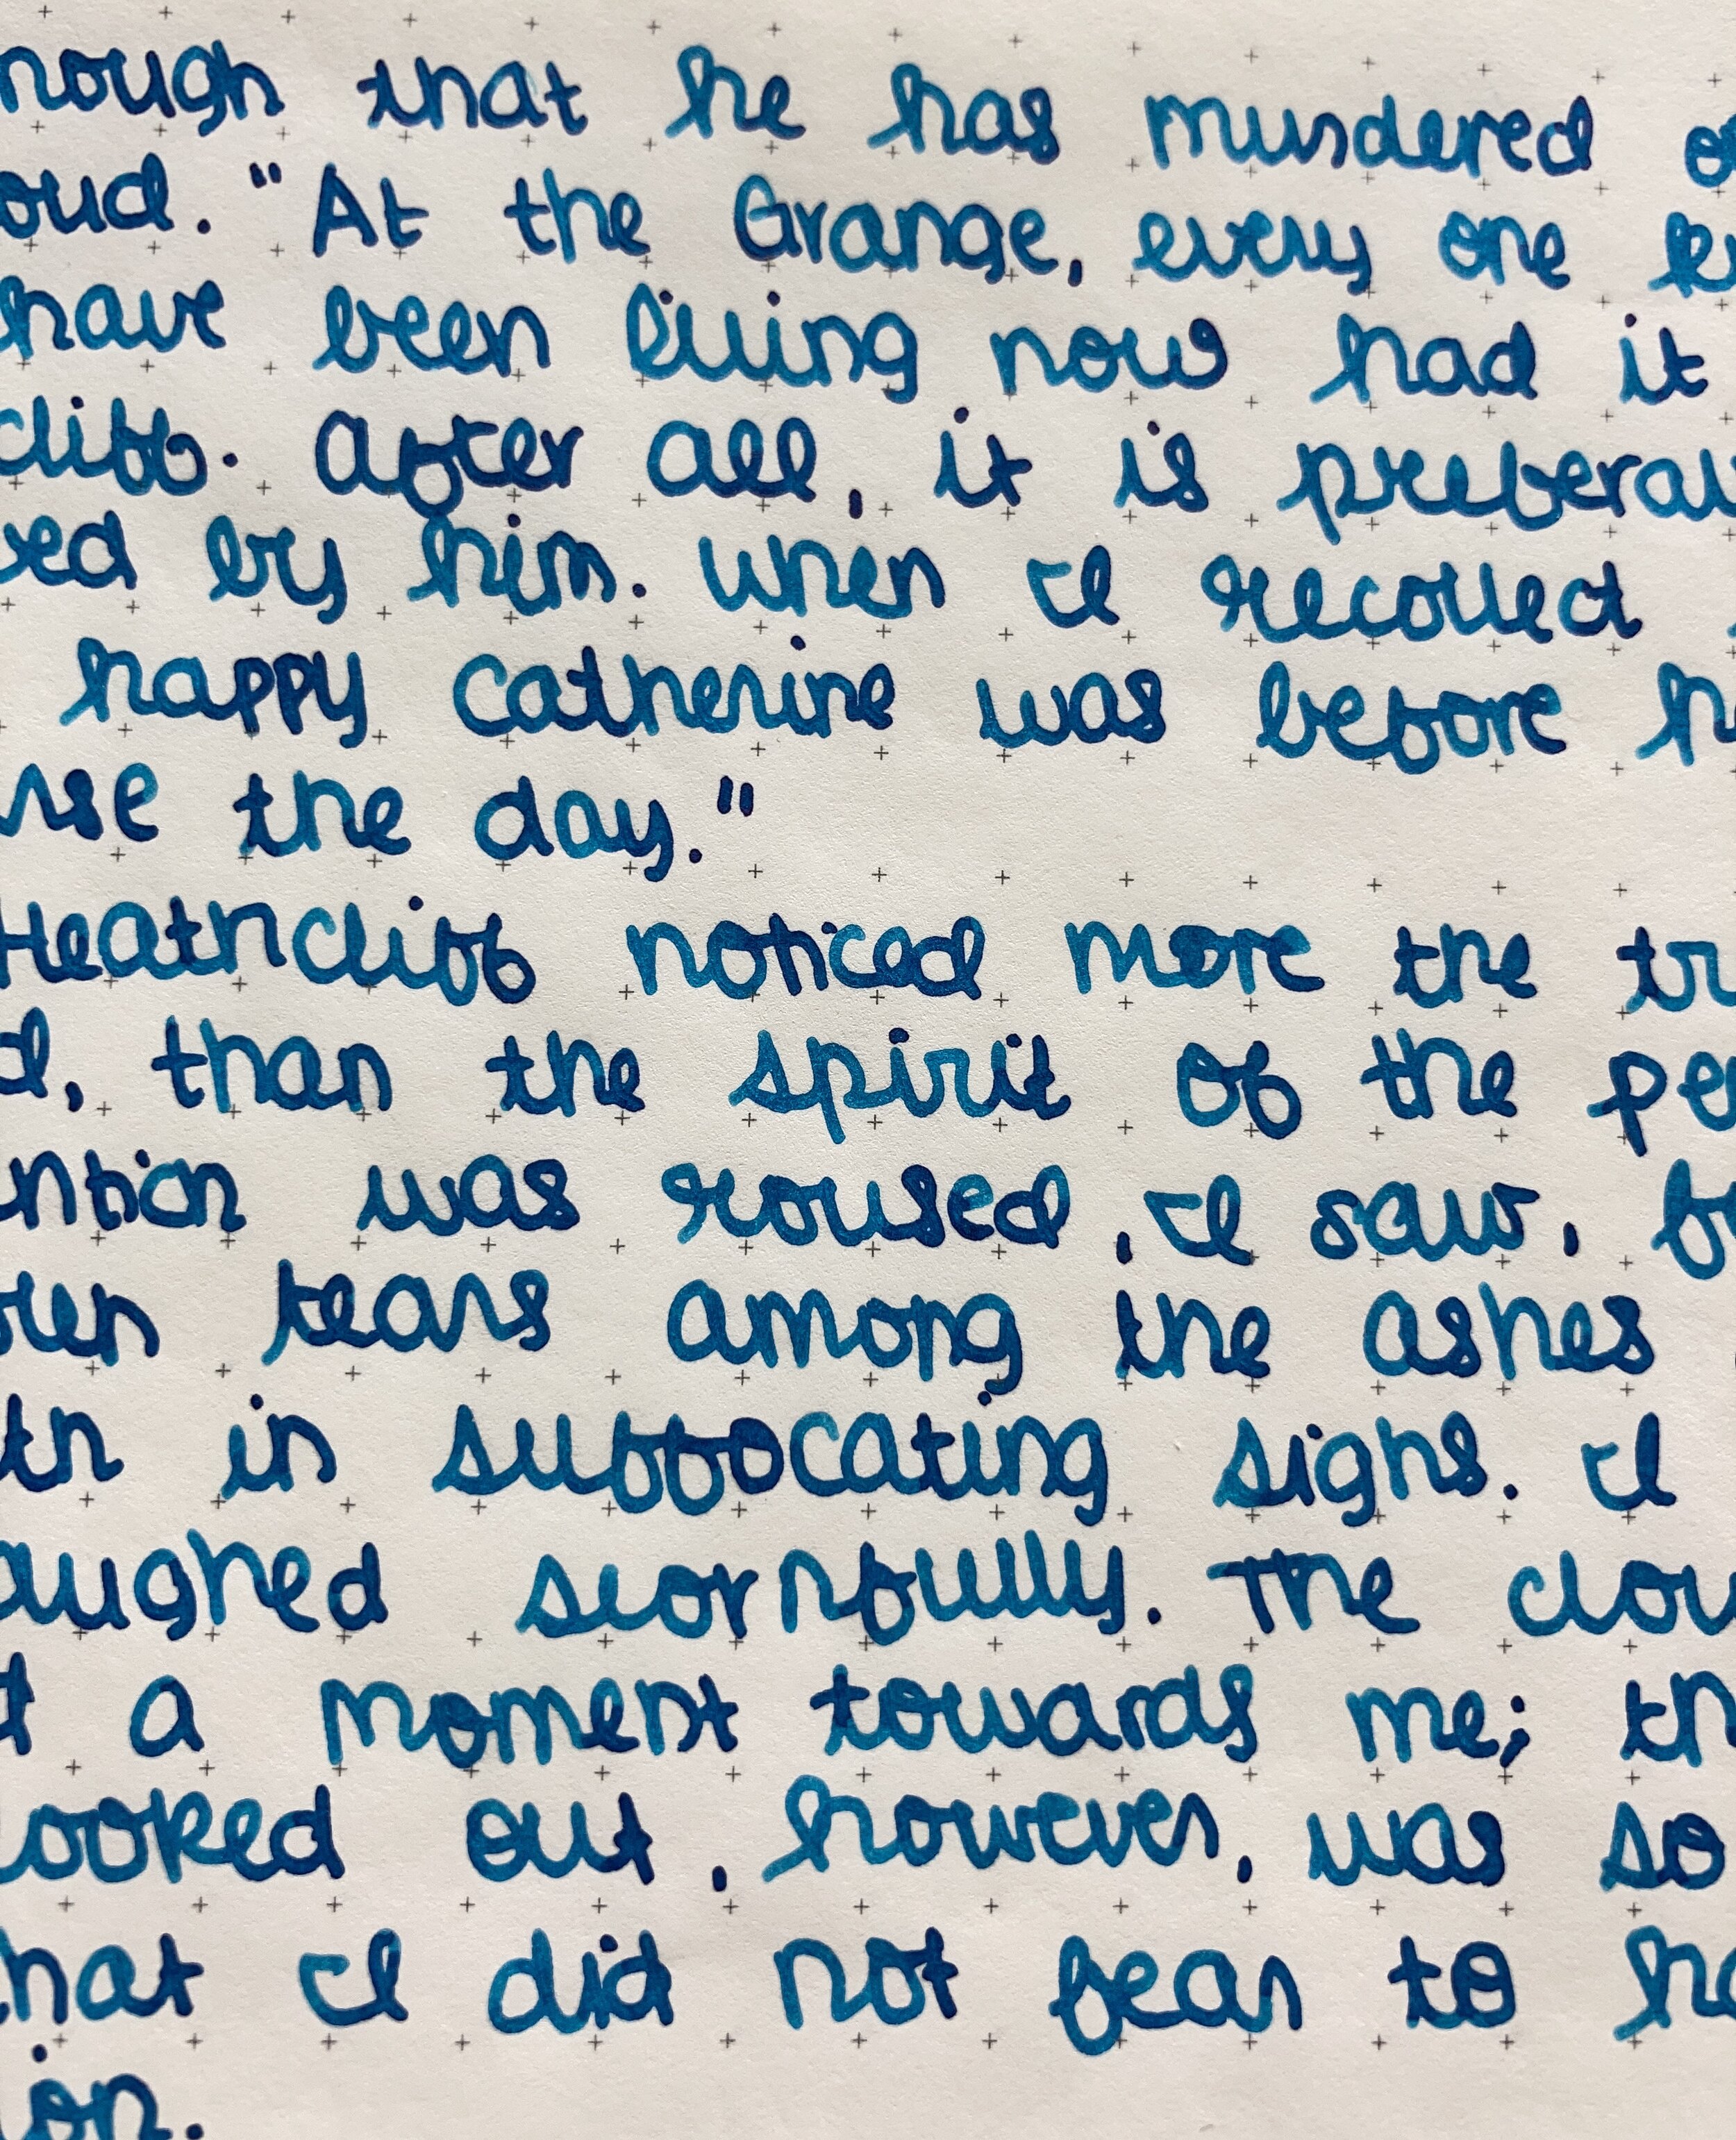 nough that he has murdered o
oud. "At the Grange, every one k
have been living now had it
cliff. After all, it is preferab
ved by him. When I recollect
happy Catherine was before h
urse the day."
Heathcliff noticed more the tr
d, than the spirit of the pe
ntion was roused, I saw, f
own tears among the ashes
th in suffocating sighs. I
aughed scornfully. The clou
d a moment towards me; th
looked out, however, was so
hat I did not fear to ha
ion.